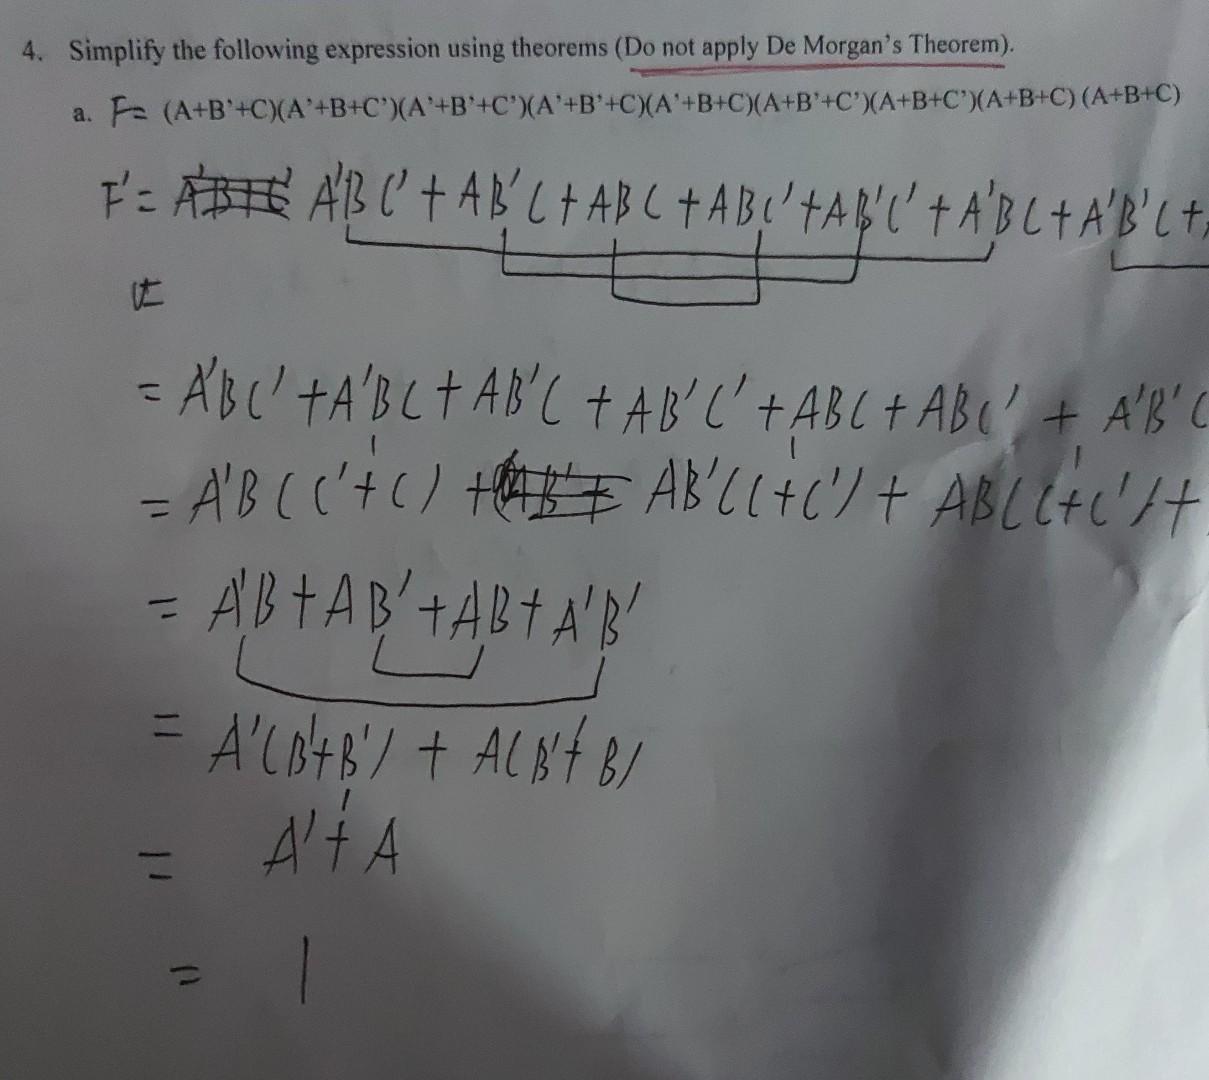 4. Simplify the following expression using theorems (Do not apply De Morgan's Theorem).
a. F= (A+B'+C)(A'+B+C')(A'+B'+C')(A'+B'+C)(A'+B+C)(A+B'+C')(A+B+C')(A+B+C) (A+B+C)
F'= A'BC' + AB'C + ABC + ABC' + AB'C' + A'BC + A'B'C +
= A'BC' + A'BC + AB'C + AB'C' + ABC + ABC' + A'B'C
= A'B(C'+C) + AB'(C+C') + AB(C+C') +
= A'B + AB' + AB + A'B'
= A'(B+B') + A(B'+B)
= A' + A
= 1